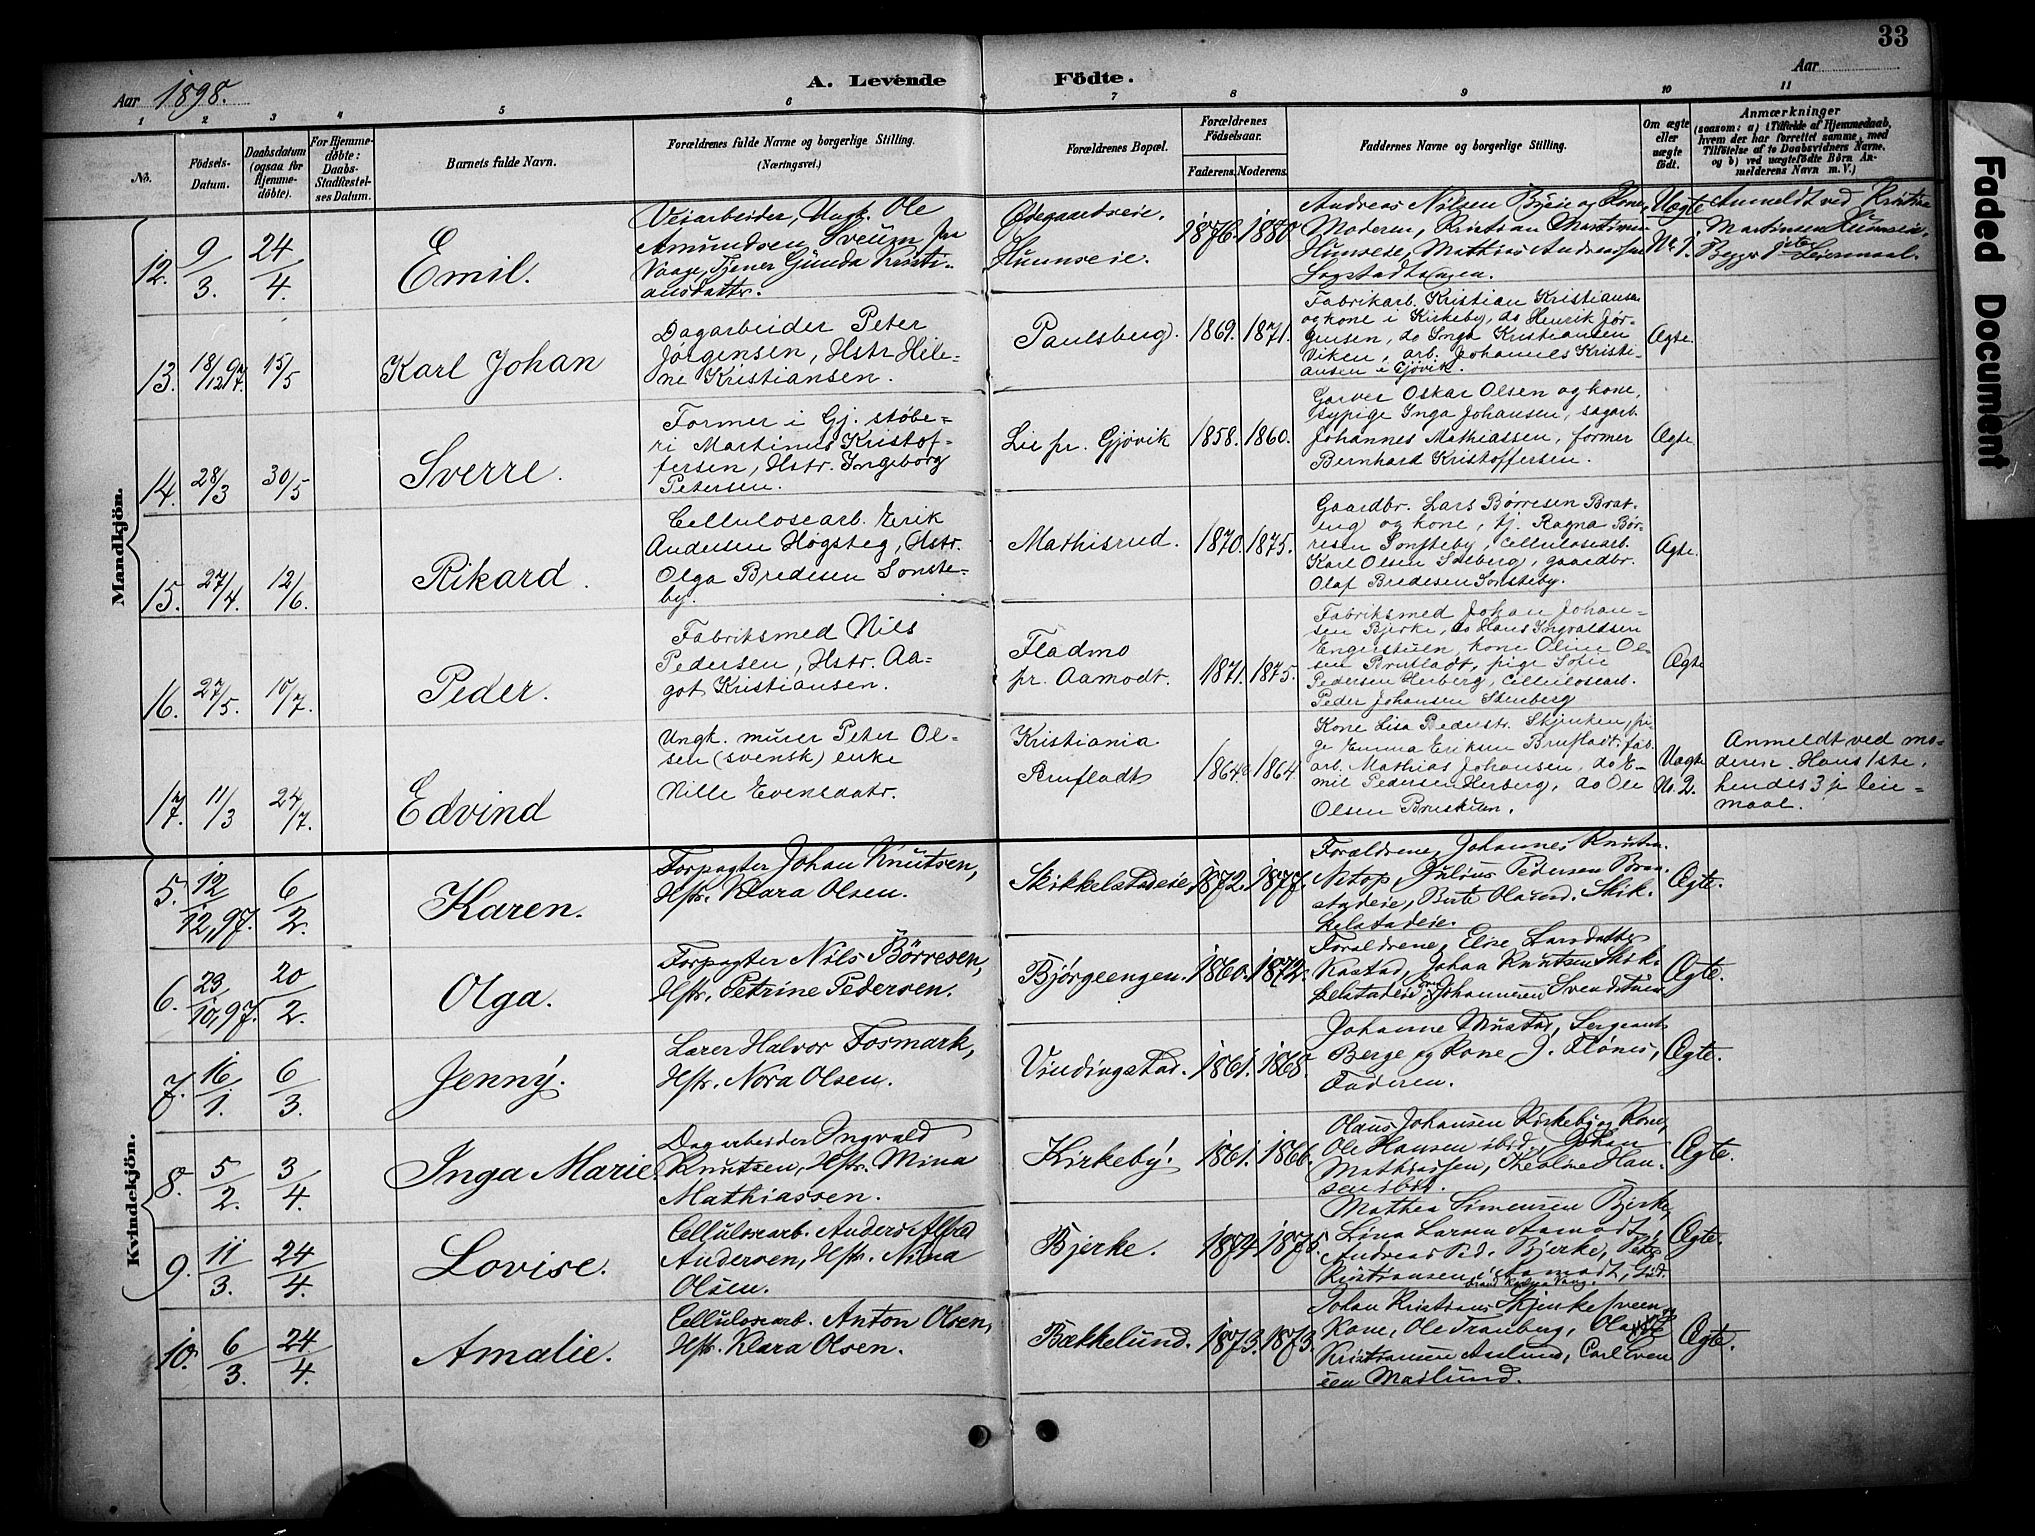 33
Aar 1898.
A. Levende Födte.
Aar
1 2 3 4 5 6 7 8 9 10 11
No.
Födsels-Datum.
Daabsdatum (ogsaa for Hjemmedöbte).
For Hjemmedöbte: Daabs-Stadfæstelses Datum.
Barnets fulde Navn.
Forældrenes fulde Navne og borgerlige Stilling.
(Næringsvei.)
Forældrenes Bopæl.
Forældrenes Födselsaar.
Faderens. Moderens.
Faddernes Navne og borgerlige Stilling.
Om ægte eller uægte födt.
Anmærkninger
(saasom: a) i Tilfælde af Hjemmedaab, hvem der har forrettet samme, med Tilföielse af to Daabsvidners Navne, og b) ved uægtefödte Börn Anmelderens Navn m. V.)
Mandkjön.
12. 9/3. 24/4. Emil.
Veiarbeider, Ungk. Ole
Amundsen Sveum fra
Vaage, Tjener Gunda Kristi-
ansdatter.
Ødegaardseie.
Hunnseie.
1876. 1880.
Andreas Nilsen Byeie og Kone,
Moderen, Kristian Martinsen
Hunseie, Mathias Andreassen
Sogstadhagen.
Uægte
No. 1.
Anmeldt ved Kristine
Martinsen Hunnseie.
Begges 1ste Leiermaal.
13. 18/12 97. 15/5 Karl Johan
Dagarbeider Peter
Jørgensen, Hstr Hele-
ne Kristiansen.
Paulsberg. 1869. 1871.
Fabrikarb. Kristian Kristiansen
og kone i Kirkeby, do Henrik Jør-
gensen, do Inga Kristiansen
Viken, arb. Johannes Kristi-
ansen i Gjøvik.
Ægte.
14. 28/3 30/5 Sverre.
Former i Gj. støbe-
ri Martinus Kristof-
fersen, Hstr. Ingeborg
Petersen.
Lie pr. Gjøvik 1858. 1860.
Garver Oskar Olsen og kone,
sypige Inga Johansen, sagarb.
Johannes Mathiassen, former
Bernhard Kristoffersen.
Ægte
15. 27/4. 12/6. Rikard.
Cellulosearb. Erik
Andersen Høgsteg, Hstr.
Olga Bredesen Sønste-
by.
Mathisrud. 1870. 1875.
Gaardbr. Lars Børresen Brat-
eng og kone, tj. Ragna Bør-
resen Sønsteby, cellulosearb.
Karl Olsen Solberg, gaardbr.
Olaf Bredesen Sønsteby.
Ægte.
16. 27/5. 10/7. Peder.
Fabriksmed Nils
Pedersen, Hstr. Aa-
got Kristiansen.
Fladmo
pr. Aamodt.
1871. 1875.
Fabriksmed Johan Johan-
sen Bjerke, do Hans Ingvaldsen
Engerstuen, kone Oline Ol-
sen Brufladt, pige Sofie
Pedersen Herberg, Cellulosearb.
Peder Johansen Stenberg
Ægte
17. 11/3 24/7. Edvind
Ungk. murer Peter Ol-
sen (svensk) enke
Nille Evensdatr.
Kristiania
Brufladt
1864. 1864
Kone Lisa Pederstr. Skjenken, pi-
ge Emma Eriksen Brufladt, fab.
arb. Mathias Johansen, do E-
mil Pedersen Herberg, do Ole
Olsen Bruskuen.
Uægte
No. 2.
Anmeldt ved mo-
deren. Hans 1ste,
hendes 3je leie-
maal.
Kvindekjön.
5. 12/12,97. 6/2. Karen.
Forpagter Johan Knutsen,
Hstr. Klara Olsen.
Skikkelstadeie 1872. 1877.
Forældrene, Johannes Knutsen
Netop, Julius Pedersen Bra-
stadeie, Berte Skik-
kelstadeie.
Ægte.
6. 23/10,97. 20/2. Olga.
Forpagter Nils Børresen,
Hstr. Petrine Pedersen.
Bjørgeengen. 1860. 1872.
Forældrene, Elise Larsdatter
Kastad, Johan Knutsen Skik-
kelstadeie, Johannesen Svendstuen
Ægte.
7. 16/1. 6/3. Jenny.
Lærer Halvor Fosmark,
Hstr. Nora Olsen.
Vindingstad. 1861. 1868.
Johanne Mustad, Sergeant
Berge og Kone J. Flønes,
Faderen.
Ægte.
8. 5/2. 3/4. Inga Marie.
Dagarbeider Ingvald
Knutsen, Hstr. Mina
Mathiassen.
Kirkeby. 1861. 1866.
Olaus Johansen Kirkeby og Kone,
Ole Hansen ibid., Johan
Mathiassen, Theoline Han-
sen ibid.
Ægte.
9. 11/3. 24/4. Lovise.
Cellulosearb. Anders Alfred
Andersen, Hstr. Nina
Olsen.
Bjerke. 1874. 1875.
Mathea Simensen Bjerke,
Lina Larsen Aamodt,
Andreas Ped. Bjerke, Peter
Kristiansen Aamodt,
Ægte.
10. 6/3. 24/4. Amalie.
Cellulosearb. Anton Olsen,
Hstr. Klara Olsen.
Bækkelund. 1873. 1873.
Johan Kristians Skjenkesveen og
Kone, Ole Tranberg,
Kristiansen Aaslund, Carl Even-
sen Maslund.
Ægte.
Faded Document